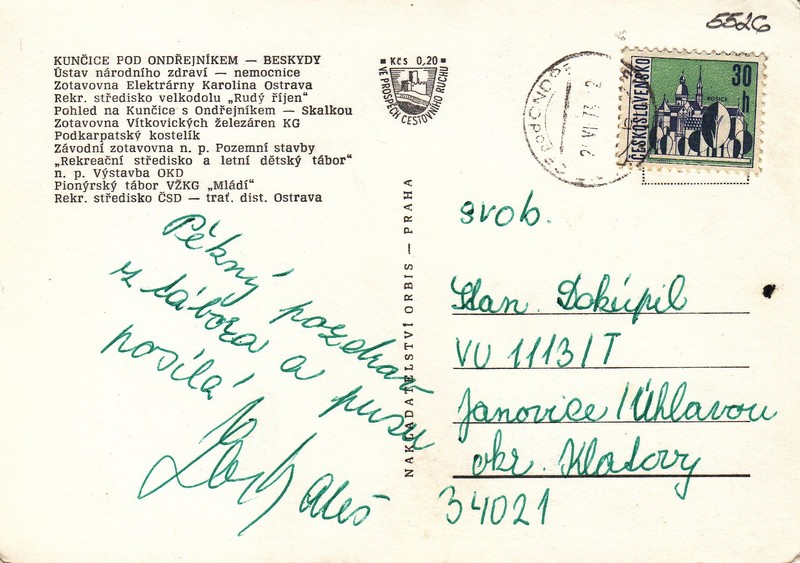 5526
KUNČICE POD ONDŘEJNÍKEM — BESKYDY
Ústav národního zdraví — nemocnice
Zotavovna Elektrárny Karolina Ostrava
Rekr. středisko velkodolu „Rudý říjen"
Pohled na Kunčice s Ondřejníkem — Skalkou
Zotavovna Vítkovických železáren KG
Podkarpatský kostelík
Závodní zotavovna n. p. Pozemní stavby
„Rekreační středisko a letní dětský tábor"
n. p. Výstavba OKD
Pionýrský tábor VŽKG „Mládí"
Rekr. středisko ČSD — trať. dist. Ostrava
Kčs 0,20
VE PROSPĚCH CESTOVNÍHO RUCHU
ČESKOSLOVENSKO
30 h
KOŠICE
NAKLADATELSTVÍ ORBIS — PRAHA
Pěkný pozdrav
z tábora a pusu
posílá
Aleš
svob.
Stan. Dokúpil
VU 1113/T
Janovice/Úhlavou
okr. Klatovy
34021